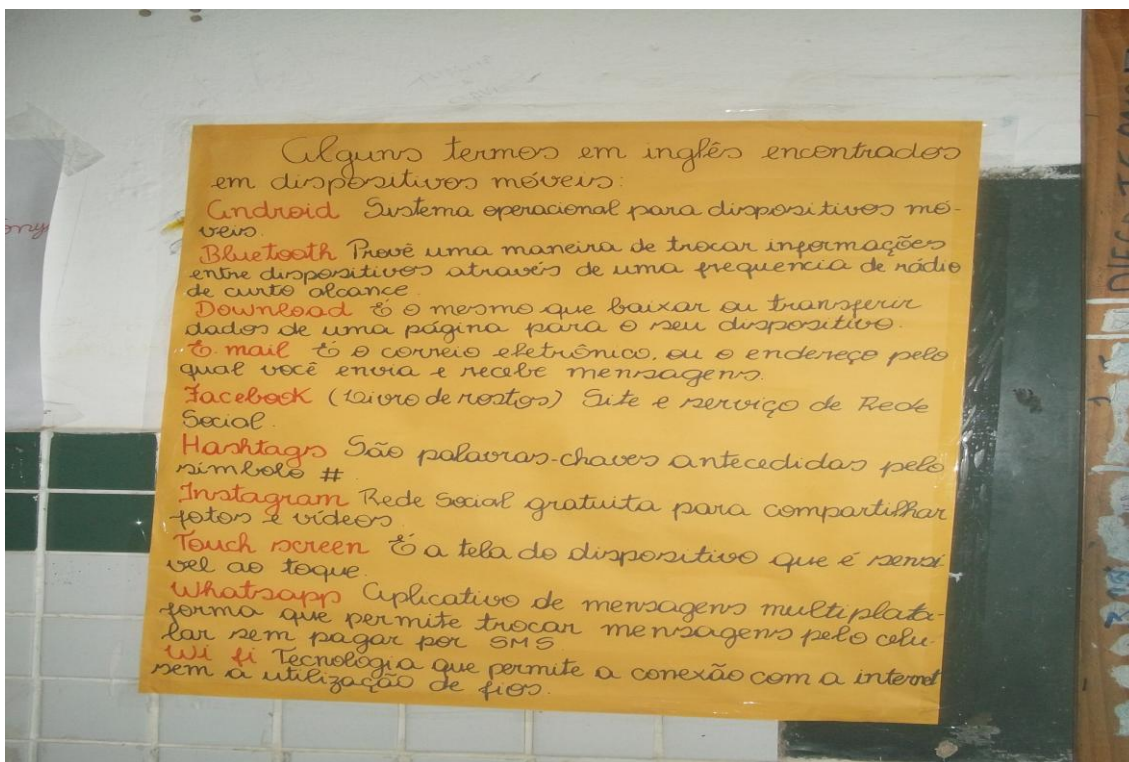 Alguns termos em inglês encontrados
em dispositivos móveis:
Android Sistema operacional para dispositivos mó-
veis.
Bluetooth Provê uma maneira de trocar informações
entre dispositivos através de uma frequencia de rádio
de curto alcance.
Download É o mesmo que baixar ou transferir
dados de uma página para o seu dispositivo.
E. mail É o correio eletrônico, ou o endereço pelo
qual você envia e recebe mensagens.
Facebook (Livro de rostos) Site e serviço de Rede
Social.
Hashtags São palavras-chaves antecedidas pelo
símbolo #
Instagram Rede Social gratuita para compartilhar
fotos e vídeos
Touch screen É a tela do dispositivo que é sensí
vel ao toque.
Whatsapp Aplicativo de mensagens multiplata-
forma que permite trocar mensagens pelo celu-
lar sem pagar por SMS
Wi fi Tecnologia que permite a conexão com a internet
sem a utilização de fios.